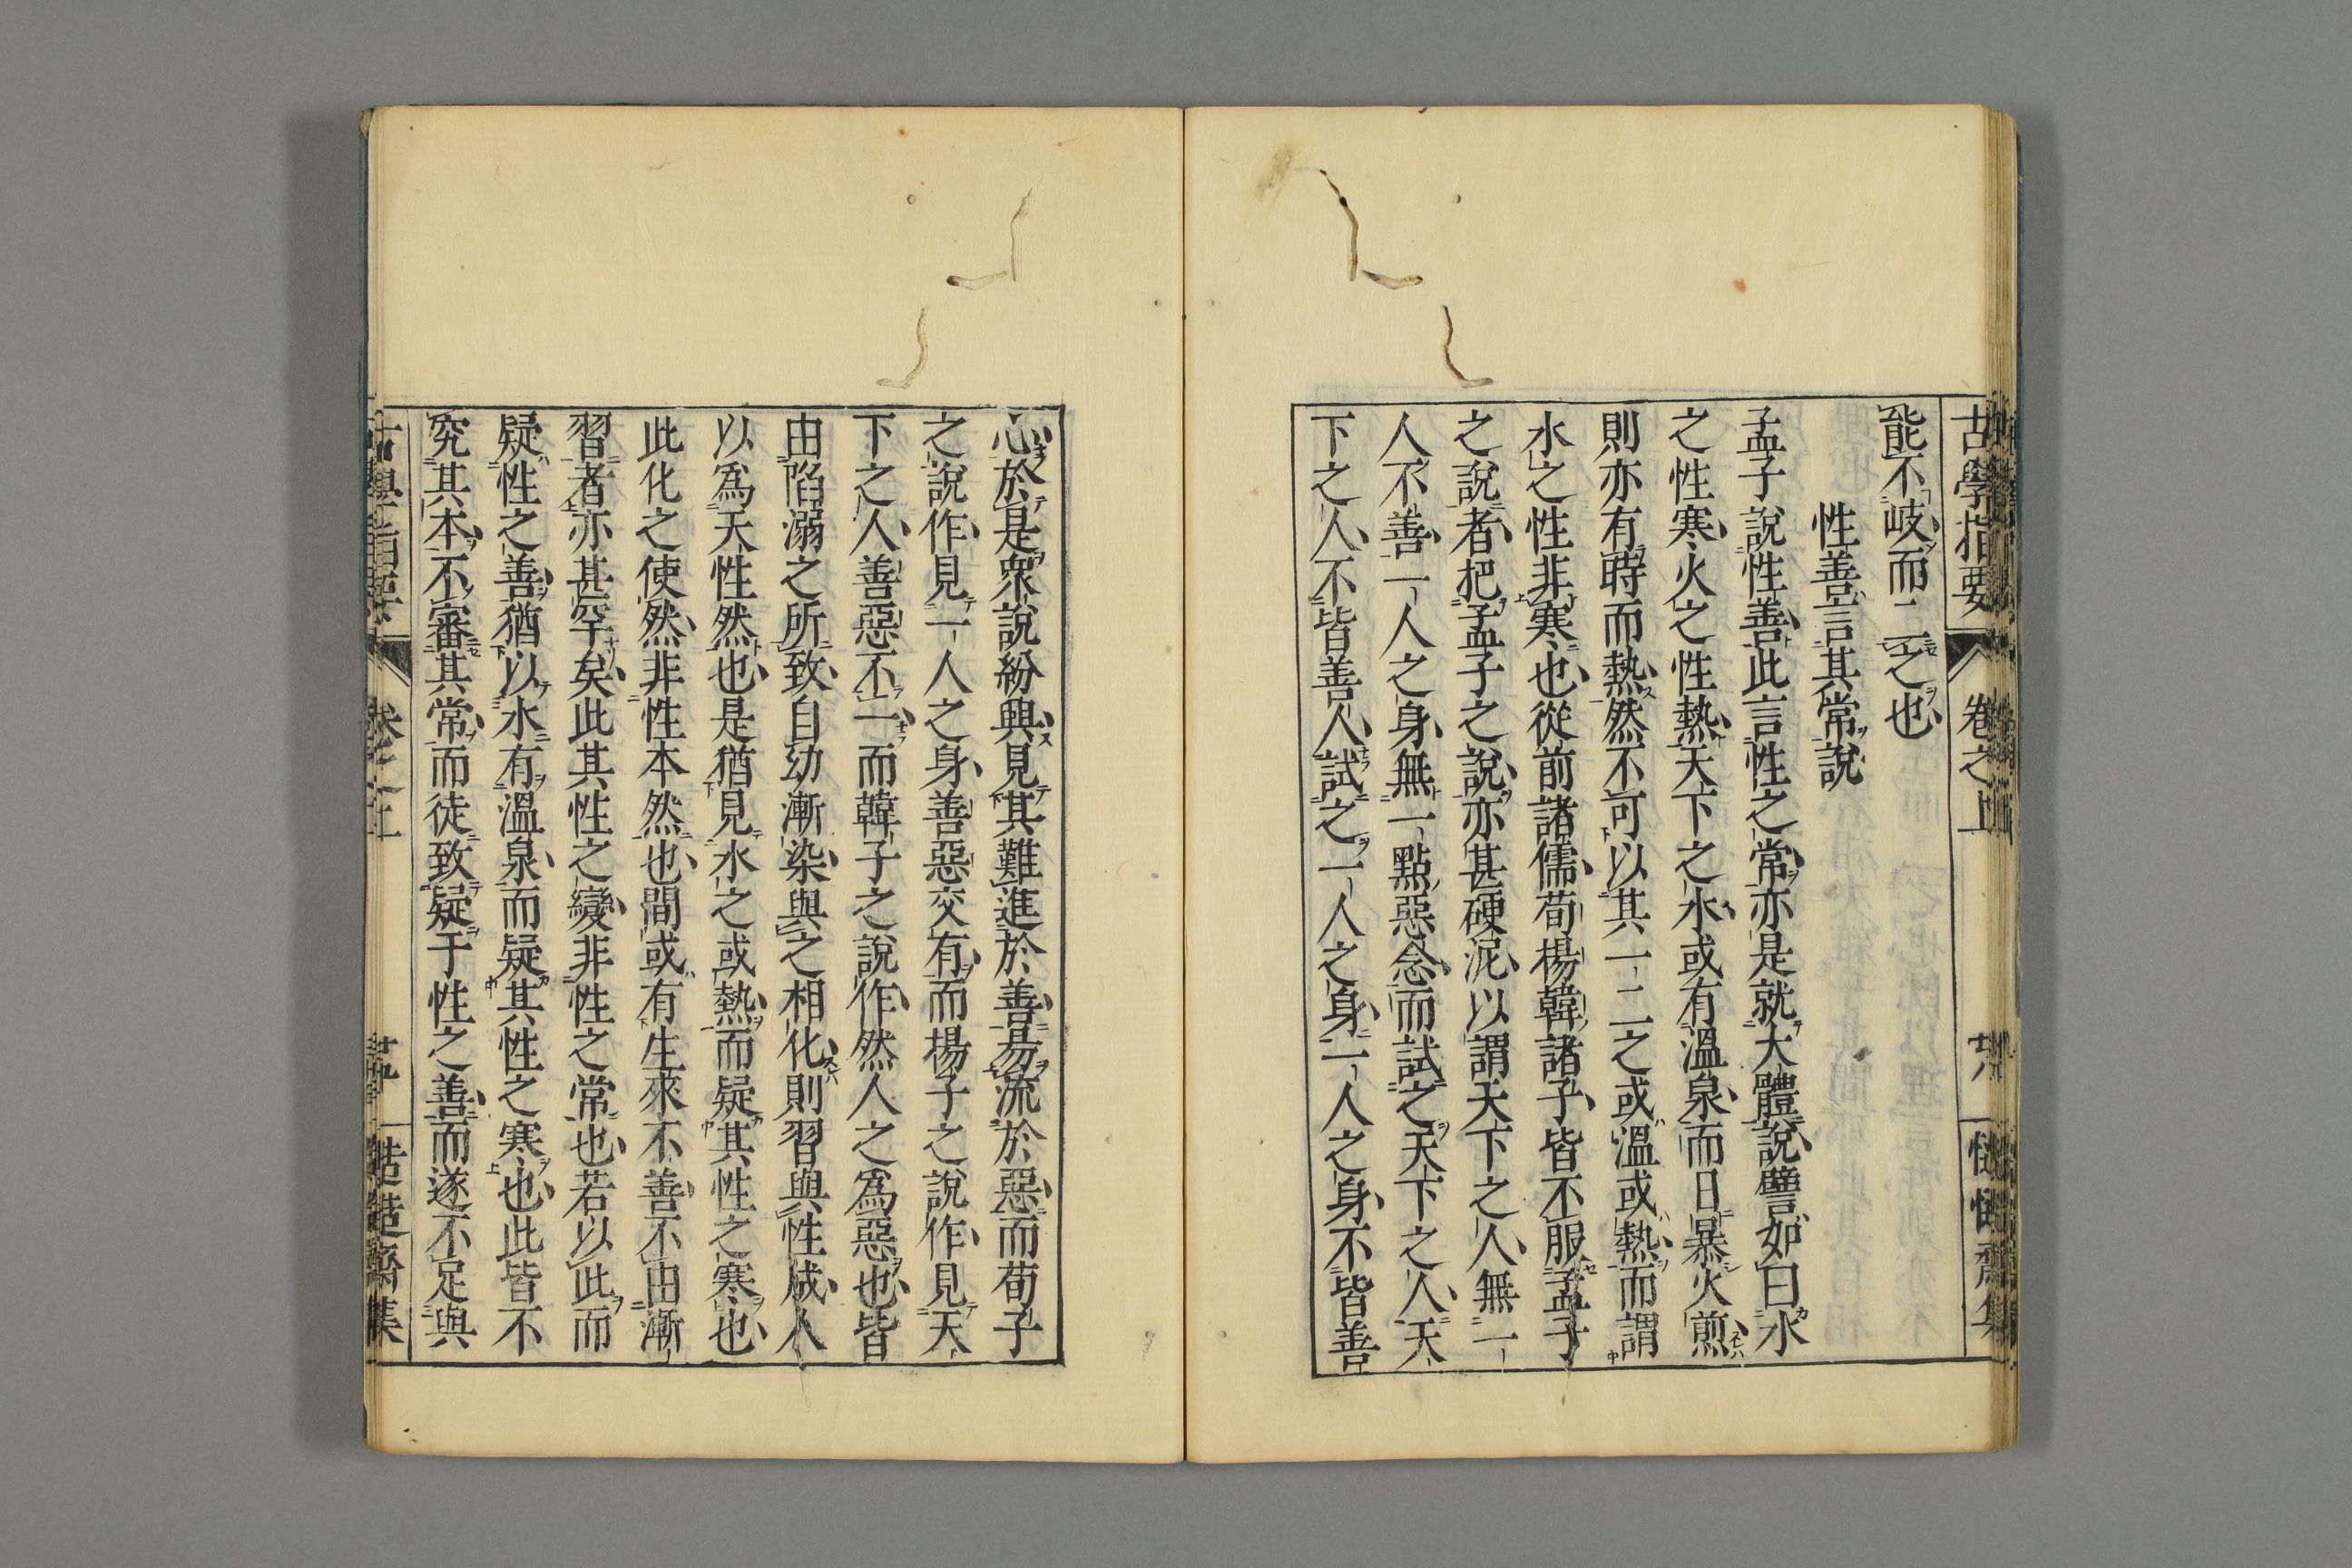 古學指要
卷之上
能不岐而二之也
性善言其常說
孟子說性善此言性之常亦是就大體說譬如曰水
之性寒火之性熱天下之水或有溫泉而日暴火煎
則亦有時而熱然不可以其一二之或溫或熱而謂
水之性非寒也從前諸儒荀楊韓諸子皆不服孟子
之說者把孟子之說亦甚硬泥以謂天下之人無一
人不善一人之身無一點惡念而試之天下之人天
下之人不皆善人試之一人之身一人之身不皆善
心於是衆說紛興見其難進於善易流於惡而荀子
之說作見一人之身善惡交有而楊子之說作見天
下之人善惡不一而韓子之說作然人之爲惡也皆
由陷溺之所致自幼漸染與之相化則習與性成人
以爲天性然也是猶見水之或熱而疑其性之寒也
此化之使然非性本然也間或有生來不善不由漸
習者亦甚罕矣此其性之變非性之常也若以此而
疑性之善猶以水有溫泉而疑其性之寒也此皆不
究其本不審其常而徒致疑于性之善而遂不足與
古學指要
卷之上